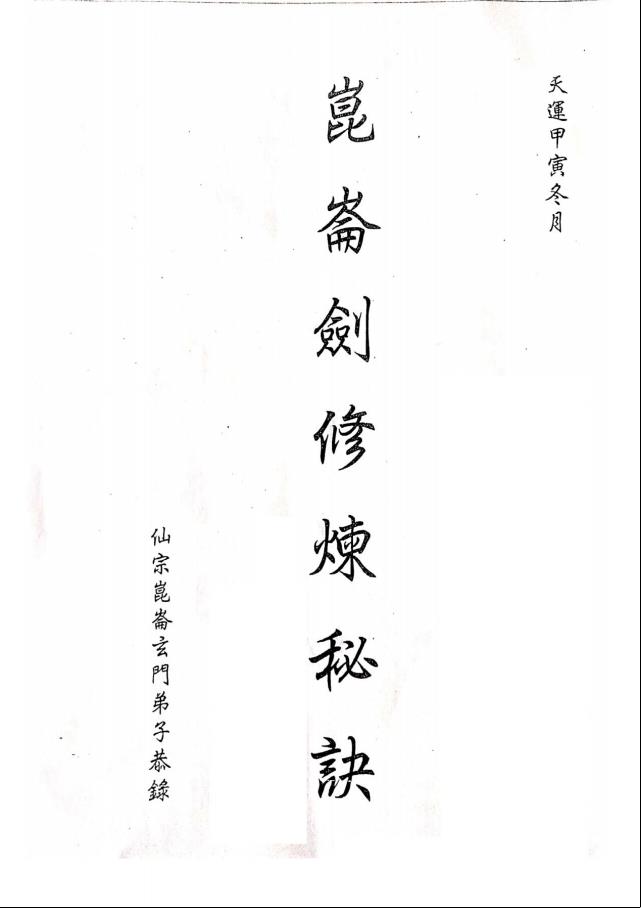 天運甲寅冬月
崑崙劍修煉秘訣
仙宗崑崙玄門弟子恭錄